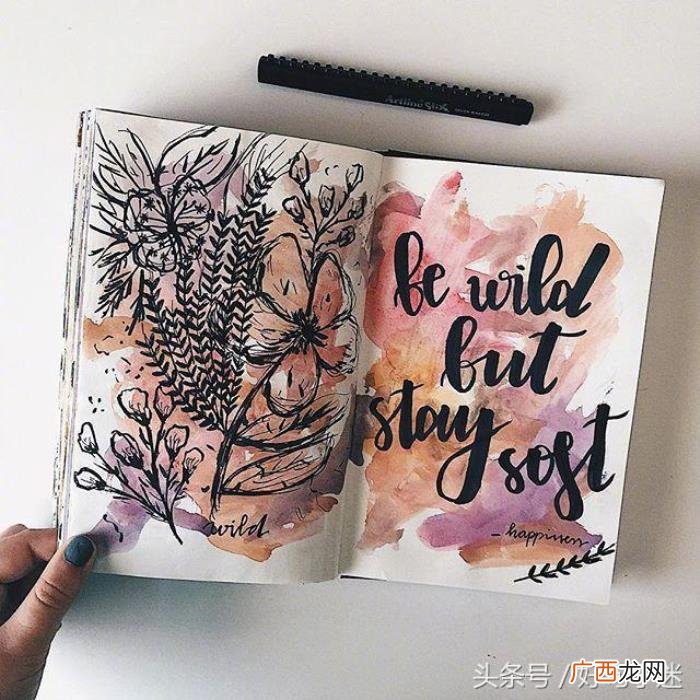 Artline Stix
wild
be wild
but
stay
soft
- happiness
头条号 / 好
广西龙网
迷